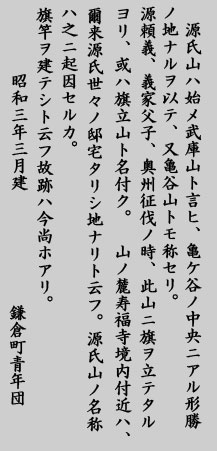 源氏山ハ始メ武庫山ト言ヒ、亀ケ谷ノ中央ニアル形勝
ノ地ナルヲ以テ、又亀谷山トモ称セリ。
源頼義、義家父子、奥州征伐ノ時、此山ニ旗ヲ立テタル
ヨリ、或ハ旗立山ト名付ク。　山ノ麓寿福寺境内付近ハ、
爾来源氏世々ノ邸宅タリシ地ナリト云フ。源氏山ノ名称
ハ之ニ起因セルカ。
旗竿ヲ建テシト云フ故跡ハ今尚ホアリ。
昭和三年三月建　　鎌倉町青年団